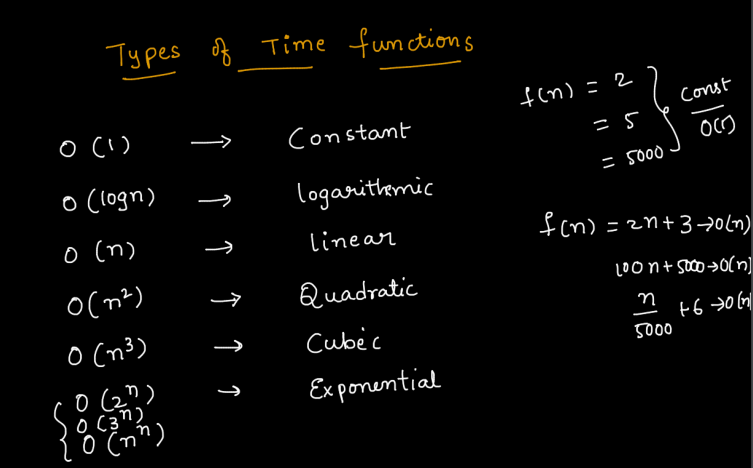 Types of Time functions
O(1) → Constant
O(logn) → logarithmic
O(n) → linear
O(n²) → Quadratic
O(n³) → Cubic
O(2ⁿ) → Exponential
O(3ⁿ)
O(nⁿ)
f(n) = 2
= 5
= 5000
Const
O(1)
f(n) = 2n+3→O(n)
100n+5000→O(n)
n/5000 +6→O(n)